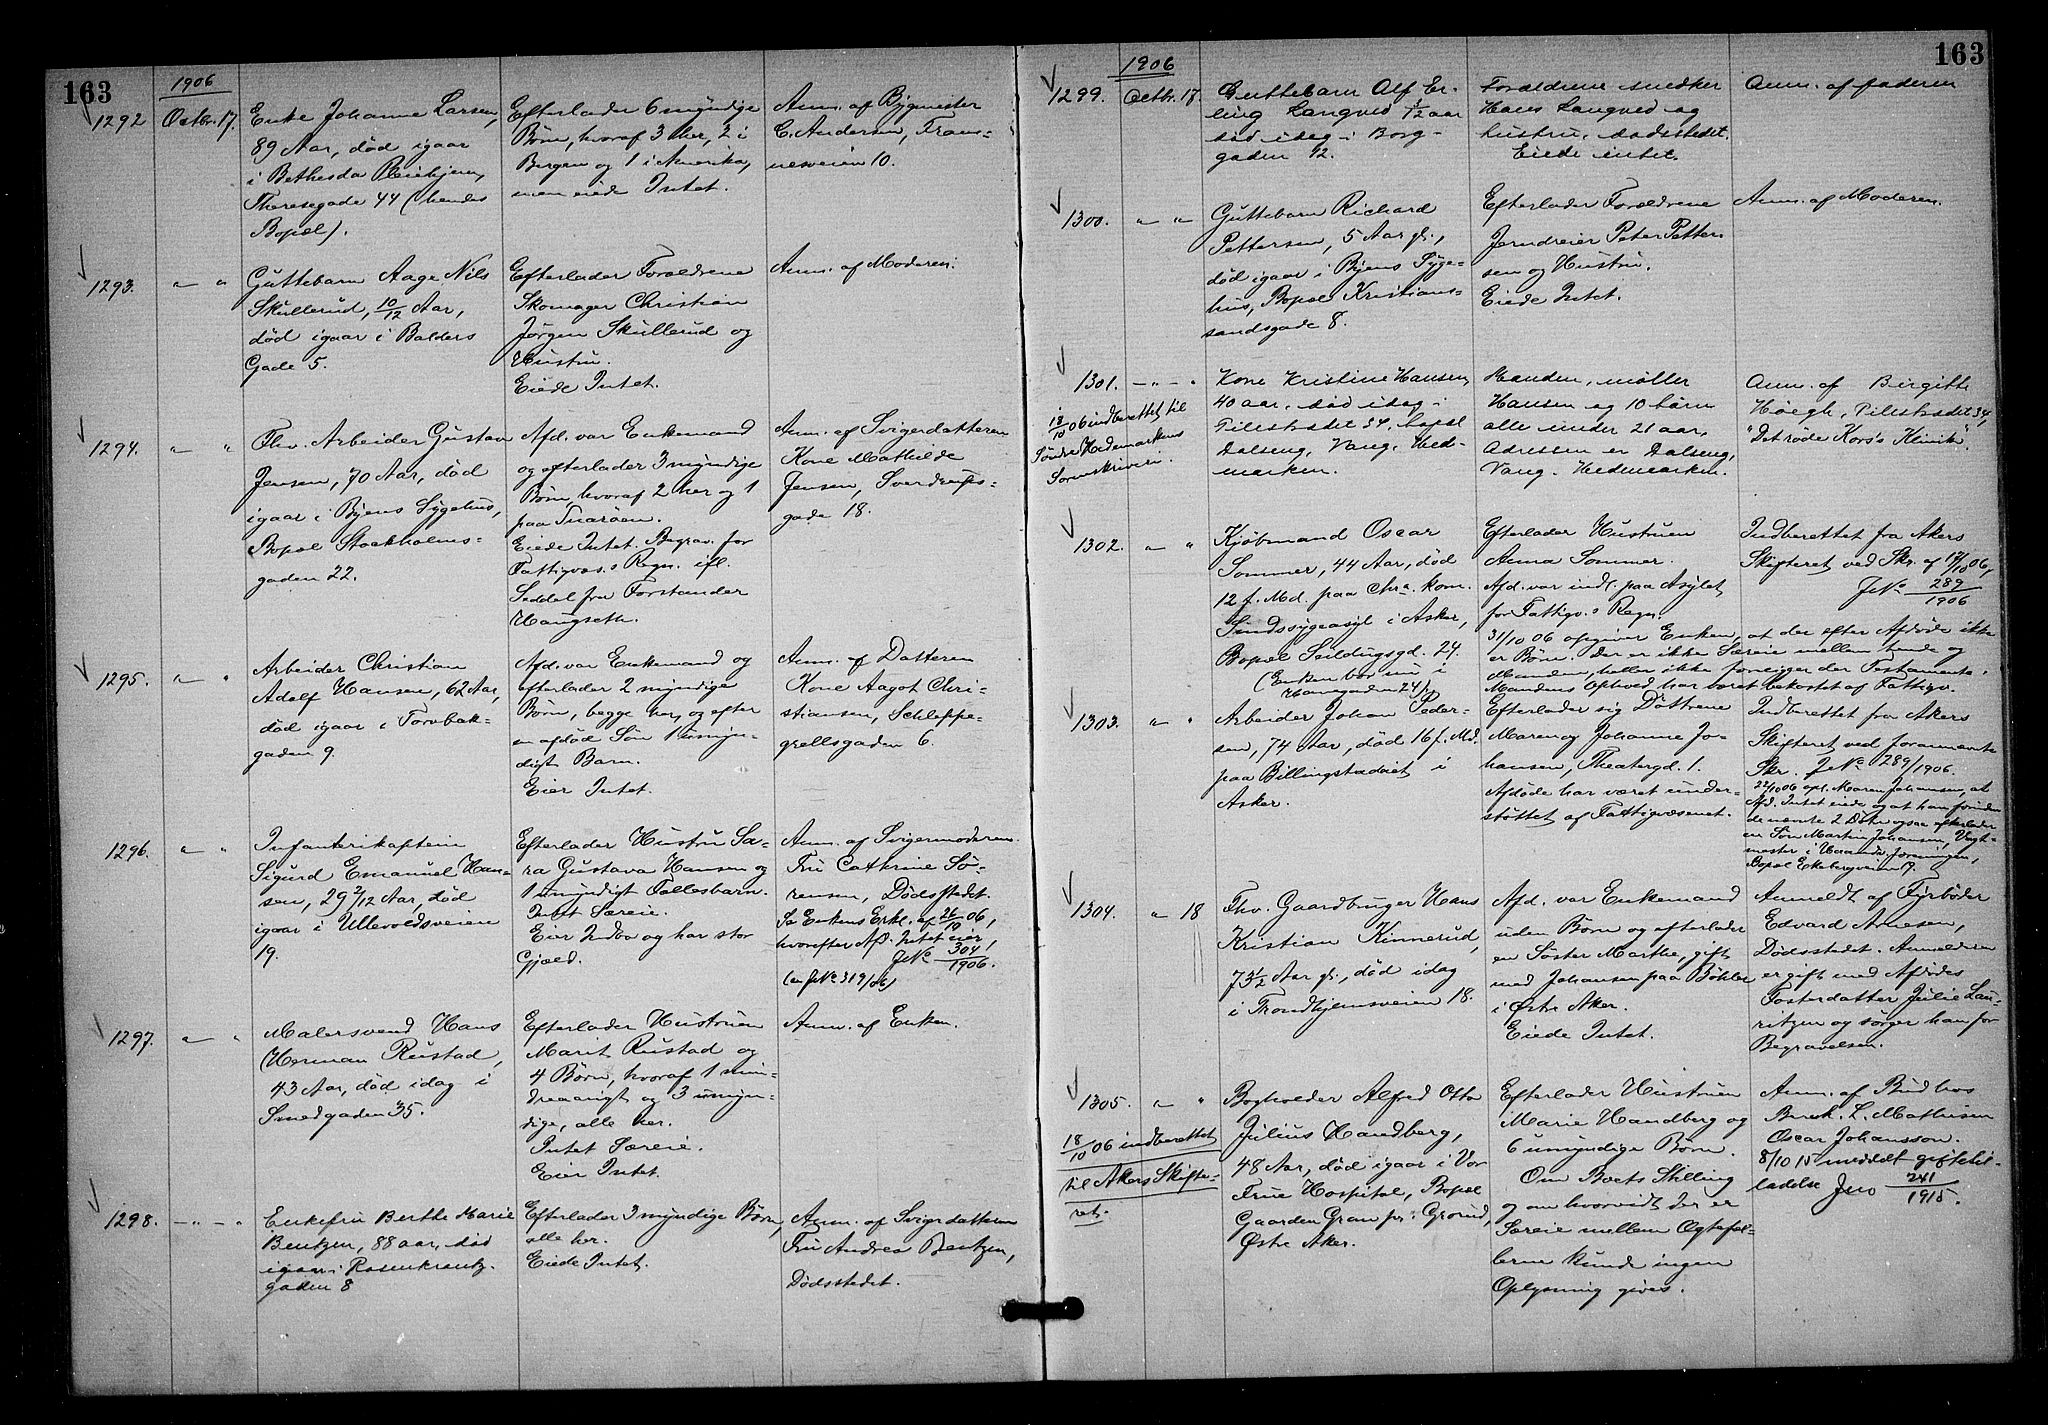 163
1906
1292 Octbr. 17. Enke Johanne Larsen,
89 Aar, død igaar
i Bethesda Pleiehjem,
Theresegade 44 (hendes
Bopæl).
Efterlader 6 myndige
Børn, hvoraf 3 her, 2 i
Bergen og 1 i Amerika,
men eiede Intet.
Anm. af Bygmester
C. Andersen, Trans-
nesveien 10.
1293. " " Guttebarn Aage Nils
Skullerud, 10/12 Aar,
død igaar i Balders
Gade 5.
Efterlader Forældrene
Skomager Christian
Jørgen Skullerud og
Hustru.
Eiede Intet.
Anm. af Moderen.
1294. " " Fhv. Arbeider Gustav
Jensen, 70 Aar, død
igaar i Byens Sygehus,
Bopæl Stockholms-
gaden 22.
Afd. var Enkemand
og efterlader 3 myndige
Børn, hvoraf 2 her og 1
paa Snarøen.
Eiede Intet. Begrav. for
Fattigvæs.s Regn. ifl.
Seddel fra Forstander
Haugseth.
Anm. af Svigerdatteren
Kone Mathilde
Jensen, Sverdrups-
gade 18.
1295. " " Arbeider Christian
Adolf Hansen, 62 Aar,
død igaar i Torvbak-
gaden 9.
Afd. var Enkemand og
efterlader 2 myndige
Børn, begge her, og efter
en afdød Søn 1 umyn-
digt Barn.
Eier Intet.
Anm. af Datteren
Kone Aagot Chri-
stiansen, Schleppe-
grellsgaden 6.
1296. " " Infanterikaptein
Sigurd Emanuel Han-
sen, 29 2/12 Aar, død
igaar i Ullevoldsveien
19.
Efterlader Hustru Sa-
ra Gustava Hansen og
1 umyndigt Fællesbarn.
Intet Særeie.
Eier Indbo og har stor
Gjæld.
Anm. af Svigermoderen
Fru Cathrine Sö-
rensen, Dødsstedet.
Se Enkens Erkl. af 26/10 06,
hvorefter Afd. Intet eier
J№ 304/1906.
(en J№ 319/06)
1297. " " Malersvend Hans
Herman Rustad,
43 Aar, død idag i
Smedgaden 35.
Efterlader Hustruen
Marit Rustad og
4 Børn, hvoraf 1 min-
dreaarigt og 3 umyn-
dige, alle her.
Intet Særeie.
Eier Intet.
Anm. af Enken.
1298. " " Enkefru Berthe Marie
Bentzen, 88 aar, død
igaar i Rosenkrantz-
gaden 8
Efterlader 3 myndige Børn,
alle her.
Eiede Intet.
Anm. af Svigerdatteren
Fru Andrea Bentzen,
Dødsstedet.
163
1906
1299. Octbr. 17. Guttebarn Alf Er-
ling Langved 1/12 aar
død idag i Borg-
gaden 12.
Forældrene snedker
Hans Langved og
hustru, dødsstedet.
Eiede intet.
Anm. af faderen
1300. " " Guttebarn Richard
Pettersen, 5 Aar gl.,
død igaar i Byens Syge-
hus, Bopæl Kristians-
sandsgade 8.
Efterlader Forældrene
Jerndreier Peter Petter-
sen og Hustru.
Eiede Intet.
Anm. af Moderen.
1301. " " Kone Kristine Hansen,
40 aar, død idag i
Pilestrædet 34, bopæl
Dalseng, Vang, Hed-
marken.
18/10 06 indberettet til
Søndre Hedemarkens
Sorenskriveri.
Manden, møller
Hansen og 10 børn
alle under 21 aar,
Adressen er Dalseng,
Vang, Hedemarken.
Anm. af Birgitte
Høegh, Pilestrædet 34,
"Det røde Kors's Klinik".
1302. " " Kjøbmand Oscar
Sommer, 44 Aar, død
12 f. Md. paa Chra. kom.
Sindssygeasyl i Asker,
Bopæl Seildugsgd. 24.
(Enken bor nu i
24)
Efterlader Hustruen
Anna Sommer.
Afd. var indl. paa Asylet
for Fattigv.s Regn.
31/10 06 opgiver Enken, at der efter Afdøde ikke
er Børn. Der er ikke Særeie mellem hende og
Manden, heller ikke foreligger der Testamente.
Mandens Ophold har været bekostet af Fattigv.
Indberettet fra Akers
Skifteret ved Skr. af 17/10 06,
J№ 289/1906
1303. " " Arbeider Johan Peder-
sen, 74 Aar, død 16 f. Md.
paa Billingstadeiet i
Asker.
Efterlader sig Døttrene
Maren og Johanne Jo-
hansen, Theatergd. 1.
Afdøde har været under-
støttet af Fattigvæsenet.
Indberettet fra Akers
Skifteret ved forannævnte
Skr. J№ 289/1906.
22/10 06 opl. Maren Johansen, at
Afd. Intet eiede og at han foruden
de nævnte 2 Døtre ogsaa efterlader
en Søn Martin Johansen, Vagt-
mester i
Bopæl Ekebergveien 9.
1304. " 18 Fhv. Gaardbruger Hans
Kristian Kinnerud,
73 1/2 Aar gl., død idag
i Trondhjemsveien 18.
Afd. var Enkemand
uden Børn og efterlader
en Søster Marthe, gift
med Johansen paa Bøhler
i Østre Aker.
Eiede Intet.
Anmeldt af Fyrbøder
Edvard Arnesen,
Dødsstedet. Anmelderen
er gift med Afdødes
Fosterdatter Julie Lau-
ritzen og sørger han for
Begravelsen.
1305. " " Bogholder Alfred Otto
Julius Handberg,
48 Aar, død igaar i Vor
Frue Hospital, Bopæl
Gaarden Gran pr. Grorud,
Østre Aker.
18/10 06 indberettet
til Akers Skifte-
ret.
Efterlader Hustruen
Marie Handberg og
6 umyndige Børn.
Om Boets Stilling
og om hvorvidt der er
Særeie mellem Ægtefæl-
lerne kunde ingen
Oplysning gives.
Anm. af Bud hos
Berek. L. Mathisen
Oscar Johansson.
8/10 15 meddelt giftetil-
ladelse Jno 241/1915.